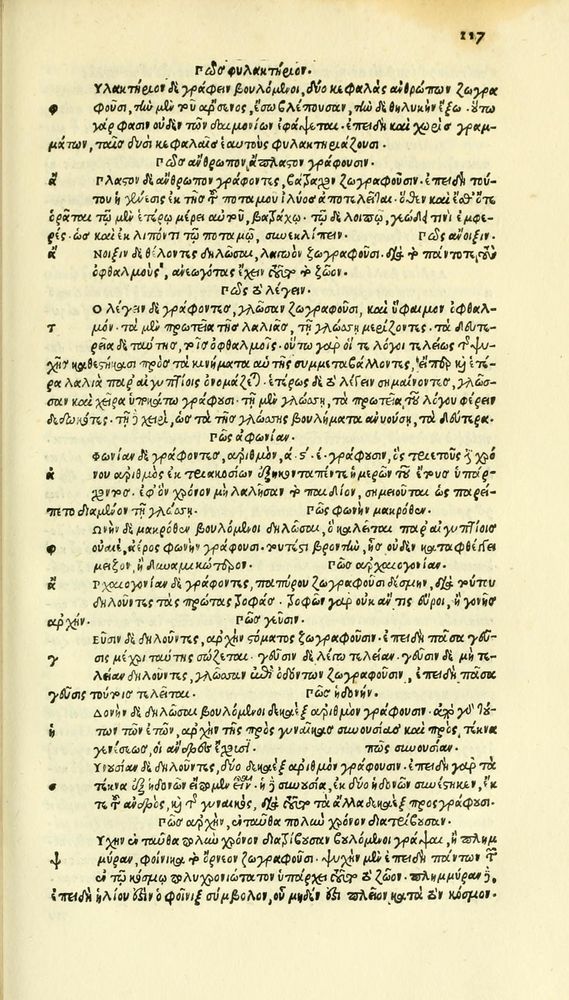 117
Πῶς φυλακτήριον.
Υλακτήριον δὲ γράφειν βουλόμενοι, δύο κεφαλὰς ἀνθρώπων ζωγρα
φ φοῦσι, τὴν μὲν τοῦ ἄρσενος, ἔσω βλέπουσαν, τὴν δὲ θηλυκὴν ἔξω. οὕτω
γάρ φασιν οὐδὲν τῶν δαιμονίων ἐφάψεται. ἐπειδὴ καὶ χωρὶς γραμ-
μάτων, ταῖς δυσὶ κεφαλαῖς ἑαυτοὺς φυλακτηριάζουσι.
Πῶς ἄνθρωπον ἄπλαστον γράφουσιν.
ἄ Πλαστον δὲ ἄνθρωπον γράφοντες, βάτραχον ζωγραφοῦσιν. ἐπειδὴ τού-
του ἡ γένεσις ἐκ τῆς τοῦ ποταμοῦ ἰλύος ἀποτελεῖται. ὅθεν καὶ ἔσθ' ὅτε
ὁρᾶται τῷ μὲν ἑτέρῳ μέρει αὐτοῦ, βατράχῳ. τῷ δὲ λοιπῷ, γεώδει τινὶ ἐμφε-
ρές. ὡς καὶ ἐκλιπόντι τῷ ποταμῷ, συνεκλίπειν. Πῶς ἄνοιξιν.
ἄ Νοιξιν δὲ θέλοντες δηλῶσαι, λαγωὸν ζωγραφοῦσι. διὰ τὸ πάντοτε τοὺς
ὀφθαλμοὺς, ἀνεωγότας ἔχειν τοῦτο τὸ ζῶον.
Πῶς τὸ λέγειν.
Ο λέγειν δὲ γράφοντες, γλῶσσαν ζωγραφοῦσι, καὶ ὕφαιμον ὀφθαλ-
τ μόν. τὰ μὲν πρωτεῖα τῆς λαλιᾶς, τῇ γλώσσῃ μερίζοντες. τὰ δευτε-
ρεῖα δὲ ταύτης, τοῖς ὀφθαλμοῖς. οὕτω γὰρ οἱ λόγοι τελείως τῆς ψυ-
χῆς καθεστήκασι πρὸς τὰ κινήματα αὐτῆς συμμεταβάλλοντες, εἴπερ καὶ ἑτέ-
ρα λαλιὰ παρ' αἰγυπτίοις ὀνομάζεται. ἑτέρως δὲ τὸ λέγειν σημαίνοντες, γλῶσ-
σαν καὶ χεῖρα ὑποκάτω γράφουσι. τῇ μὲν γλώσσῃ, τὰ πρωτεῖα τοῦ λόγου φέρειν
δεδωκότες. τῇ χειρὶ, ὡς τὰ τῆς γλώσσης βουλήματα ἀνυούσῃ, τὰ δεύτερα.
Πῶς ἀφωνίαν.
Φωνίαν δὲ γράφοντες, ἀριθμὸν, ͵α. ϛ. ε. γράφουσιν, ὃς τριετοῦς χρό
ἀ νου ἀριθμὸς ἐκ τριακοσίων ἑξηκονταπέντε ἡμερῶν τοῦ ἔτους ὑπάρ-
χοντος. ἐφ' ὃν χρόνον μὴ λαλῆσαν τὸ παιδίον, σημειοῦται ὡς παρεί-
πετο διαμένον τῇ γλώσσῃ. Πῶς φωνὴν μακρόθεν.
Ωνὴν δὲ μακρόθεν βουλόμενοι δηλῶσαι, ὃ καλεῖται παρ' αἰγυπτίοις
φ οὐαιὲ, ἀέρος φωνὴν γράφουσι. τουτέστι βροντὴν, ἧς οὐδὲν καταφθέγγεται
μεῖζον, ἢ δυναμικώτερον. Πῶς ἀρχαιογονίαν.
ἄ Ρχαιογονίαν δὲ γράφοντες, παπύρου ζωγραφοῦσι δέσμην, διὰ τούτου
δηλοῦντες τὰς πρώτας τροφάς. τροφῶν γὰρ οὐκ ἄν τις εὕροι, ἢ γονῆς
ἀρχήν. Πῶς γεῦσιν.
Εῦσιν δὲ δηλοῦντες, ἀρχὴν στόματος ζωγραφοῦσιν. ἐπειδὴ πᾶσα γεῦ-
γ σις μέχρι ταύτης σώζεται. γεῦσιν δὲ λέγω τελείαν. γεῦσιν δὲ μὴ τε-
λείαν δηλοῦντες, γλῶσσαν ἐπὶ ὀδόντων ζωγραφοῦσιν, ἐπειδὴ πᾶσα
γεῦσις τούτοις τελεῖται. Πῶς ἡδονήν.
Δονὴν δὲ δηλῶσαι βουλόμενοι δεκαὲξ ἀριθμὸν γράφουσιν. ἀπὸ γὰρ τού-
ἡ των τῶν ἐτῶν, ἀρχὴν τῆς πρὸς γυναῖκας συνουσίας καὶ πρὸς, τέκνα
γενέσεως, οἱ ἄνδρες ἔχουσι. πῶς συνουσίαν.
Υνουσίαν δὲ δηλοῦντες, δύο δεκαὲξ ἀριθμὸν γράφουσιν. ἐπειδὴ γὰρ τὰ
σ τέκνα ἐξ ἡδονῶν εἴπομεν εἶναι. ἡ δὲ συνουσία, ἐκ δύο ἡδονῶν συνέστηκεν, ἔκ
τε τοῦ ἀνδρὸς, καὶ τῆς γυναικὸς, διὰ τοῦτο τὰ ἄλλα δεκαὲξ προσγράφουσι.
Πῶς ἀρχὴν, ἐνταῦθα πολὺν χρόνον διατρίβουσαν.
Υχὴν ἐνταῦθα πολὺν χρόνον διατρίβουσαν βουλόμενοι γράψαι, ἢ πλημ
ψ μύραν, φοίνικα τὸ ὄρνεον ζωγραφοῦσι. ψυχὴν μὲν ἐπειδὴ πάντων τῶν
ἐν τῷ κόσμῳ πολυχρονιώτατον ὑπάρχει τοῦτο τὸ ζῶον. πλημμύραν δὲ,
ἐπειδὴ ἡλίου ἐστὶν ὁ φοῖνιξ σύμβολον, οὗ μηδέν ἐστι πλεῖον κατὰ τὸν κόσμον.